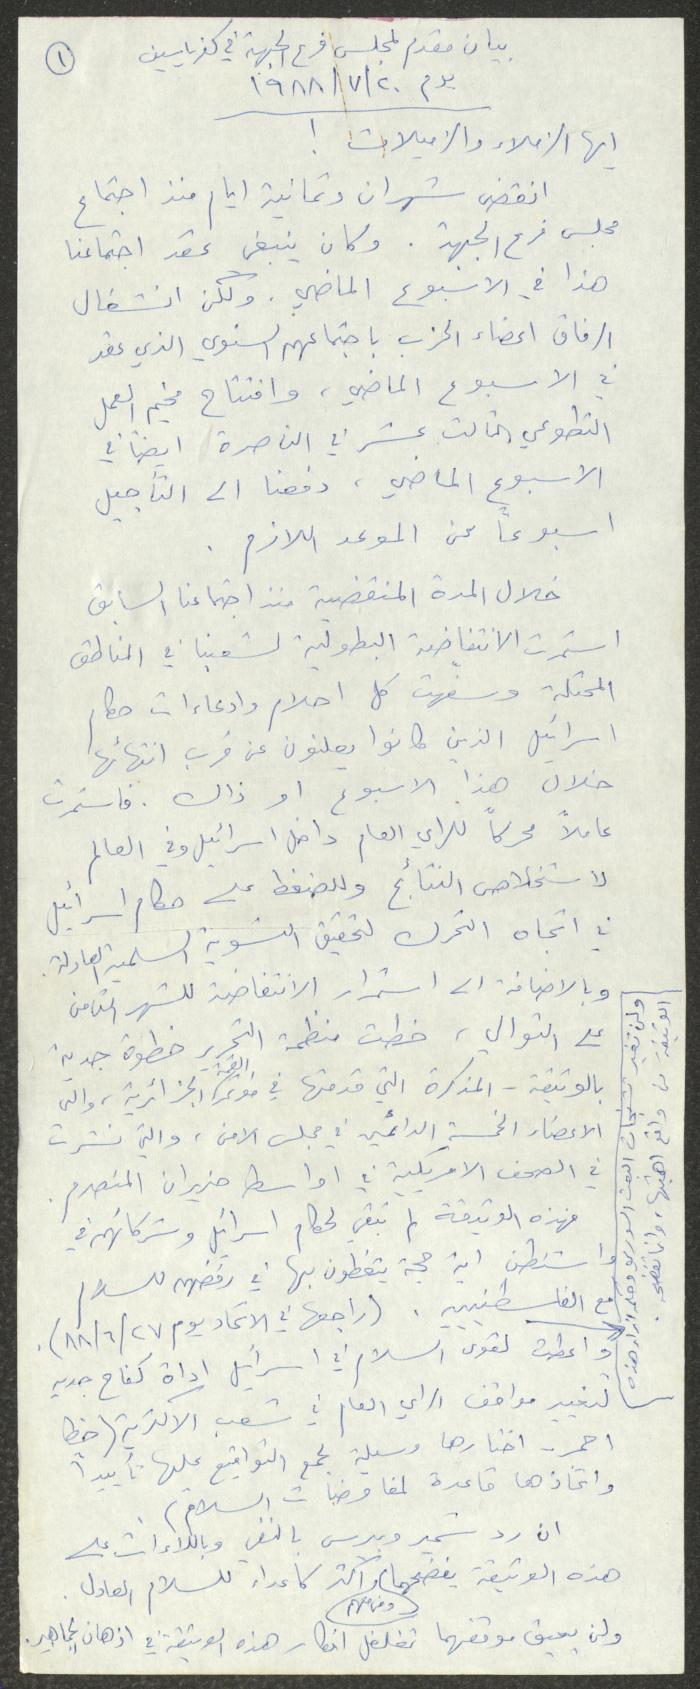 ١
بيان مقدم لمجلس فرع الجبهة في كفرياسيف
يوم ٢٠/٧/١٩٨٨
ايها الزملاء والزميلات !
انقضى شهران وثمانية ايام منذ اجتماع
مجلس فرع الجبهة . وكان ينبغي عقد اجتماعنا
هذا في الاسبوع الماضي . ولكن انشغال
الرفاق اعضاء الحزب باجتماعهم السنوي الذي عقد
في الاسبوع الماضي ، وافتتاح مخيم العمل
التطوعي الثالث عشر في الناصرة ايضاً في
الاسبوع الماضي ، دفعنا الى التأجيل
اسبوعاً عن الموعد اللازم .
خلال المدة المنقضية منذ اجتماعنا السابق
استمرت الانتفاضة البطولية لشعبنا في المناطق
المحتلة وسفهت كل احلام وادعاءات حكام
اسرائيل الذين كانوا يعلنون عن قرب انتهائها
خلال هذا الاسبوع او ذاك . فاستمرت
عاملاً محركاً للراي العام داخل اسرائيل وفي العالم
لاستخلاص النتائج وللضغط على حكام اسرائيل
في اتجاه التحرك لتحقيق التسوية السلمية العادلة .
وبالاضافة الى استمرار الانتفاضة للشهر الثامن
على التوالي ، خطت منظمة التحرير خطوة جدية
بالوثيقة - المذكرة التي قدمتها في مؤتمر القمة الجزائرية ، والى
الاعضاء الخمسة الدائمين في مجلس الامن ، والتي نشرت
في الصحف الامريكية في اواسط حزيران المنصرم .
فهذه الوثيقة لم تبق لحكام اسرائيل وشركائهم في
واشنطن اية حجة يتغطون بها في رفضهم للسلام
مع الفلسطينيين . (راجعها في الاتحاد يوم ٢٧/٦/٨٨) .
واعطت لقوى السلام في اسرائيل اداة كفاح جديه
لتغيير مواقف الراي العام في شعب الاكثرية (خطا
احمر - اختارها وسيلة لجمع التواقيع عليها تأييداً
واتخاذها قاعدة لمفاوضات السلام) .
ان رد شمير وبيرس بالنفي وباللاءات على
هذه الوثيقة يفضحهما اكثر كاعداء للسلام العادل .
ولن يعيق موقفهما تغلغل افكار هذه الوثيقة في اذهان الجماهير .
ولن تغير تشنجات البعث السوري وحلفائه ازاء هذه
الوثيقة من واقع اهميتها ، وانما تفضحه .